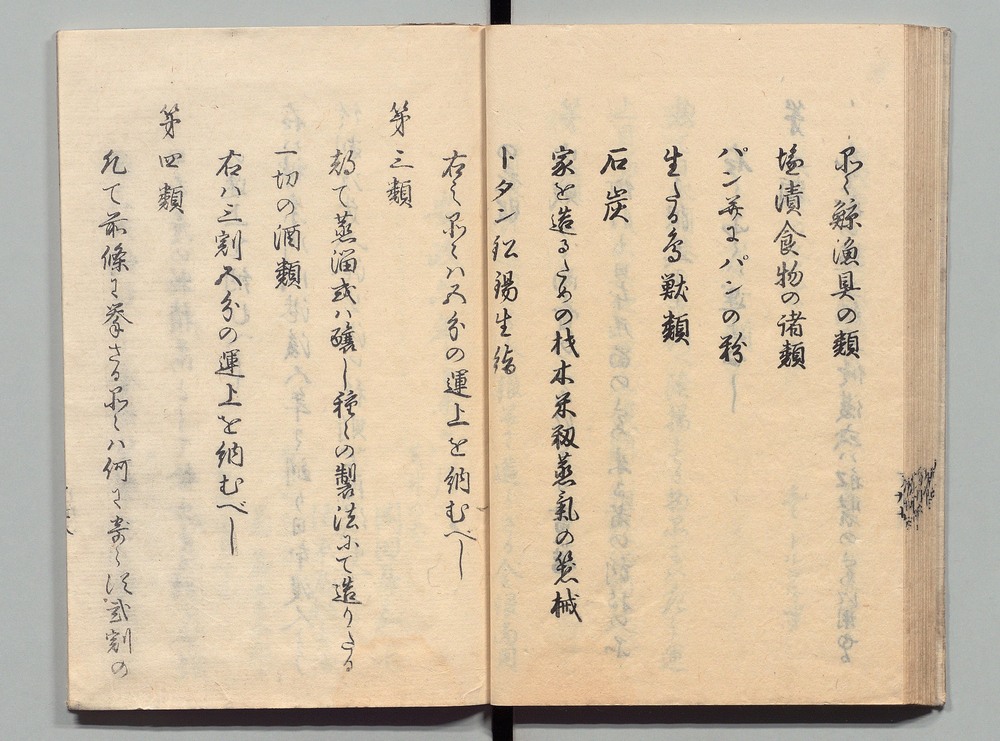 品々鯨漁具の類
塩漬食物の諸類
パン並にパンの粉
生たる鳥獣類
石炭
家を造るための材木米籾蒸氣の器械
トタン鉛錫生絹
右之品々ハ五分の運上を納むべし
第三類
都て蒸溜或ハ醸し種々の製法にて造りたる
一切の酒類
右ハ三割五分の運上を納むべし
第四類
凡て前條に挙さる品々ハ何に寄らす貳割の